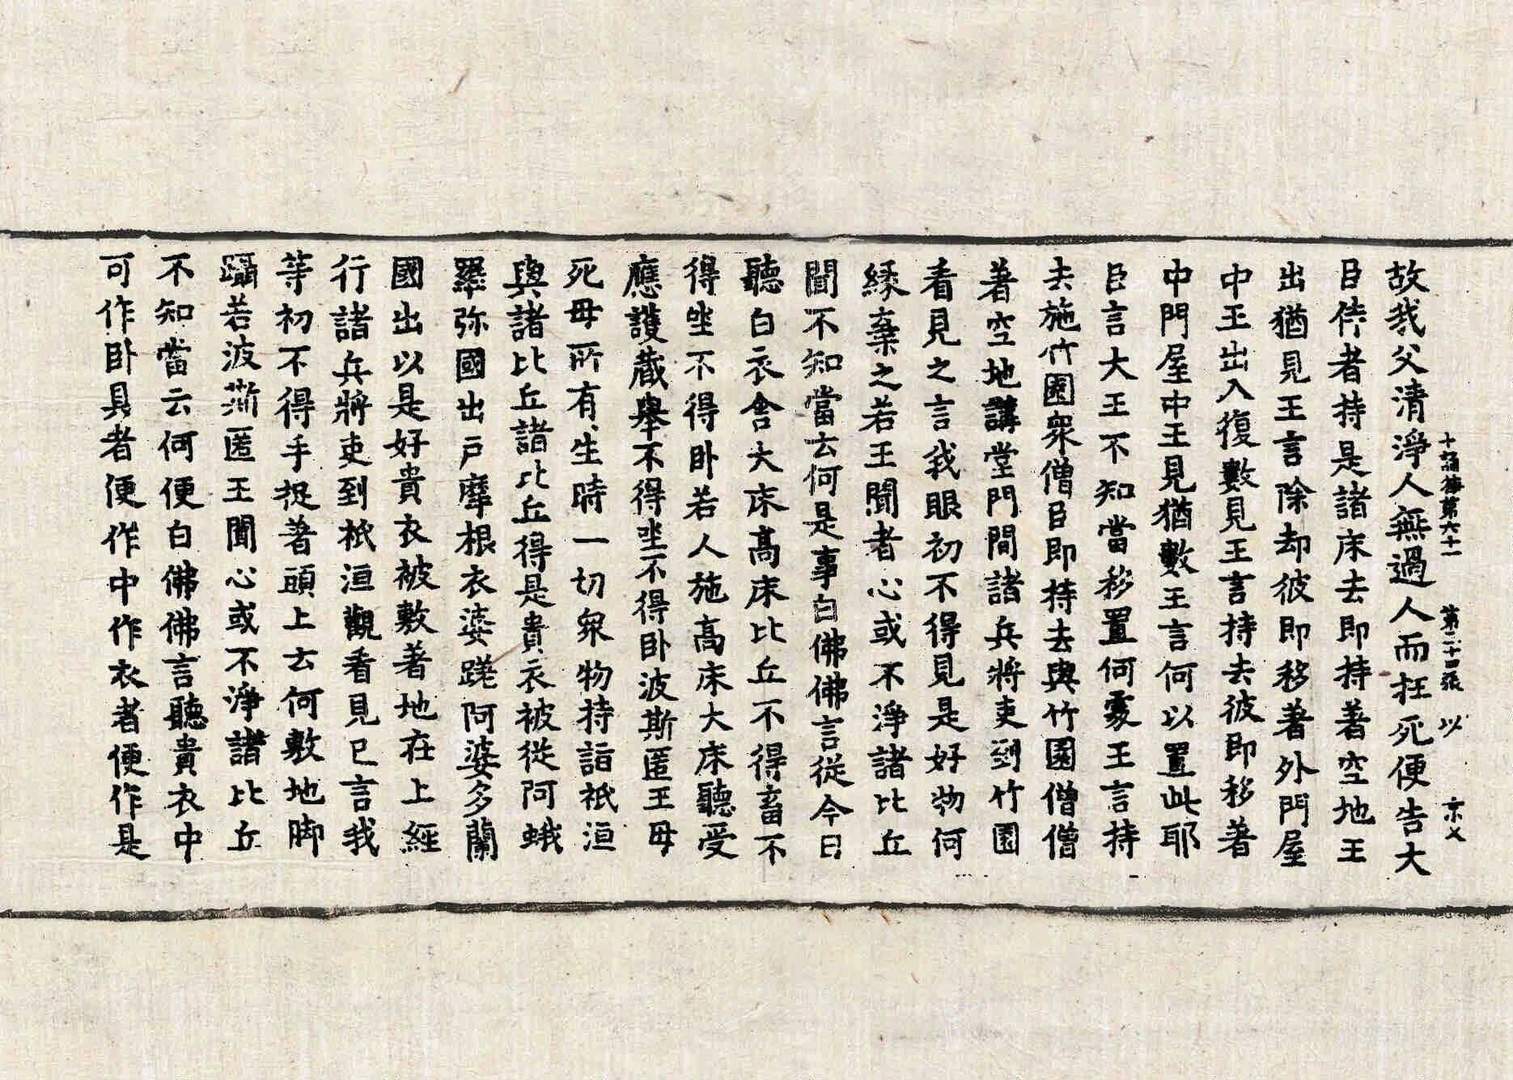 故我父清淨人無過人而抂死便告大
十誦律第六十一 第二十四張 以
臣侍者持是諸床去即持著空地王
出猶見王言除却彼即移著外門屋
中王出入復數見王言持去彼即移著
中門屋中王見猶數王言何以置此耶
臣言大王不知當移置何處王言持
去施竹園衆僧臣即持去與竹園僧僧
著空地講堂門間諸兵將吏到竹園
看見之言我眼初不得見是好物何
緣棄之若王聞者心或不淨諸比丘
聞不知當云何是事白佛佛言從今日
聽白衣舍大床高床比丘不得畜不
得坐不得卧若人施高床大床聽受
應護蔵舉不得坐不得卧波斯匿王母
死母所有生時一切衆物持詣祇洹
與諸比丘諸比丘得是貴衣被從阿蛾
羅弥國出戶摩根衣婆蹉阿婆多蘭
國出以是好貴衣被敷著地在上經
行諸兵將吏到祇洹觀看見已言我
等初不得手捉著頭上云何敷地脚
躡若波斯匿王聞心或不淨諸比丘
不知當云何便白佛佛言聽貴衣中
可作卧具者便作中作衣者便作是